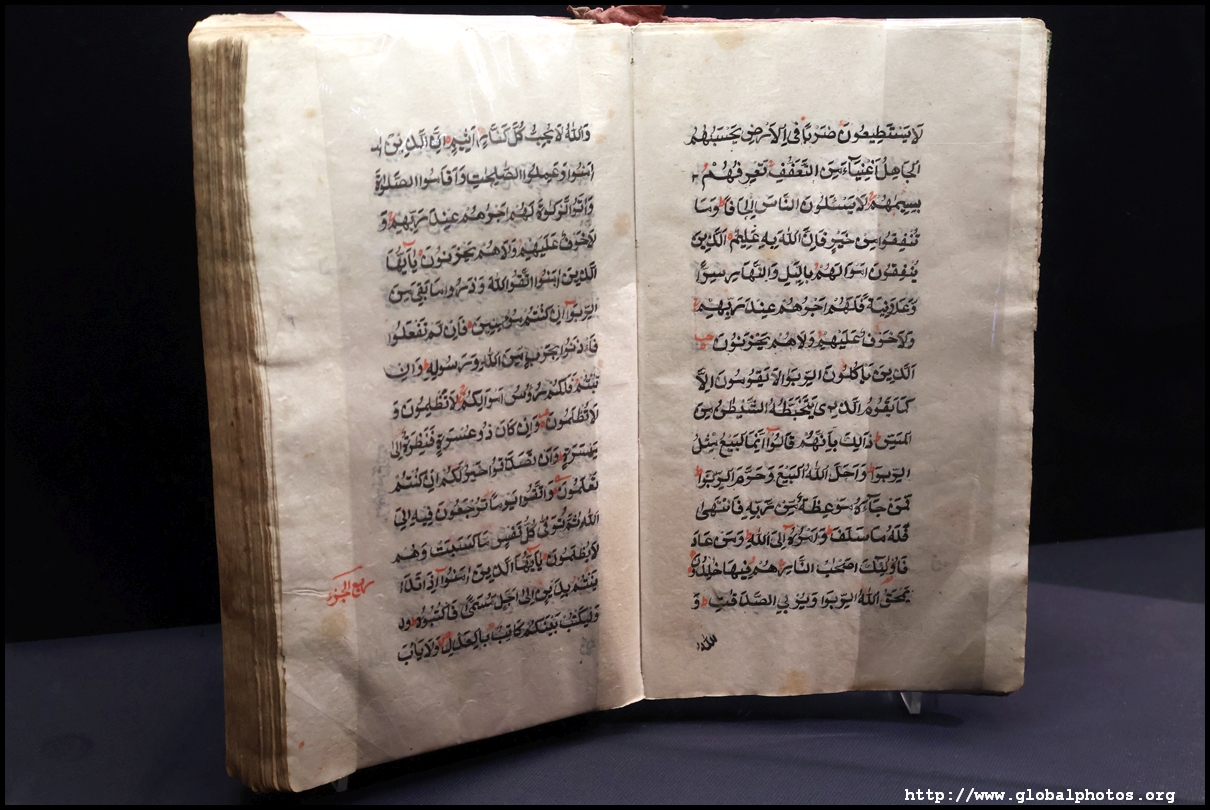 لَا يَسْتَطِيعُونَ ضَرْبًا فِى الْاَرْضِ يَحْسَبُهُمُ
الْجَاهِلُ اَغْنِيَآءَ مِنَ التَّعَفُّفِ تَعْرِفُهُمْ
بِسِيمٰهُمْ لَا يَسْـَٔلُونَ النَّاسَ اِلْحَافًا وَمَا
تُنْفِقُوا مِنْ خَيْرٍ فَاِنَّ اللّٰهَ بِهٖ عَلِيمٌ اَلَّذِينَ
يُنْفِقُونَ اَمْوَالَهُمْ بِالَّيْلِ وَالنَّهَارِ سِرًّا
وَعَلَانِيَةً فَلَهُمْ اَجْرُهُمْ عِنْدَ رَبِّهِمْ
وَلَا خَوْفٌ عَلَيْهِمْ وَلَا هُمْ يَحْزَنُونَ
اَلَّذِينَ يَاْكُلُونَ الرِّبٰوا لَا يَقُومُونَ اِلَّا
كَمَا يَقُومُ الَّذِى يَتَخَبَّطُهُ الشَّيْطٰنُ مِنَ
الْمَسِّ ذٰلِكَ بِاَنَّهُمْ قَالُوا اِنَّمَا الْبَيْعُ مِثْلُ
الرِّبٰوا وَاَحَلَّ اللّٰهُ الْبَيْعَ وَحَرَّمَ الرِّبٰوا
فَمَنْ جَآءَهُ مَوْعِظَةٌ مِنْ رَبِّهٖ فَانْتَهٰى
فَلَهُ مَا سَلَفَ وَاَمْرُهُ اِلَى اللّٰهِ وَمَنْ عَادَ
فَاُولٰٓئِكَ اَصْحٰبُ النَّارِ هُمْ فِيهَا خٰلِدُونَ
يَمْحَقُ اللّٰهُ الرِّبٰوا وَيُرْبِى الصَّدَقٰتِ وَ
وَاللّٰهُ لَا يُحِبُّ كُلَّ كَفَّارٍ اَثِيمٍ اِنَّ الَّذِينَ
اٰمَنُوا وَعَمِلُوا الصّٰلِحٰتِ وَاَقَامُوا الصَّلٰوةَ
وَاٰتَوُا الزَّكٰوةَ لَهُمْ اَجْرُهُمْ عِنْدَ رَبِّهِمْ وَ
لَا خَوْفٌ عَلَيْهِمْ وَلَا هُمْ يَحْزَنُونَ يٰٓاَيُّهَا
الَّذِينَ اٰمَنُوا اتَّقُوا اللّٰهَ وَذَرُوا مَا بَقِىَ مِنَ
الرِّبٰوا اِنْ كُنْتُمْ مُؤْمِنِينَ فَاِنْ لَمْ تَفْعَلُوا
فَاْذَنُوا بِحَرْبٍ مِنَ اللّٰهِ وَرَسُولِهٖ وَاِنْ
تُبْتُمْ فَلَكُمْ رُؤُسُ اَمْوَالِكُمْ لَا تَظْلِمُونَ وَ
لَا تُظْلَمُونَ وَاِنْ كَانَ ذُو عُسْرَةٍ فَنَظِرَةٌ اِلٰى
مَيْسَرَةٍ وَاَنْ تَصَدَّقُوا خَيْرٌ لَكُمْ اِنْ كُنْتُمْ
تَعْلَمُونَ وَاتَّقُوا يَوْمًا تُرْجَعُونَ فِيهِ اِلَى
اللّٰهِ ثُمَّ تُوَفّٰى كُلُّ نَفْسٍ مَا كَسَبَتْ وَهُمْ
لَا يُظْلَمُونَ يٰٓاَيُّهَا الَّذِينَ اٰمَنُوا اِذَا تَدَا
يَنْتُمْ بِدَيْنٍ اِلٰى اَجَلٍ مُسَمًّى فَاكْتُبُوهُ
وَلْيَكْتُبْ بَيْنَكُمْ كَاتِبٌ بِالْعَدْلِ وَلَا يَاْبَ
ربع الجزء
http://www.globalphotos.org